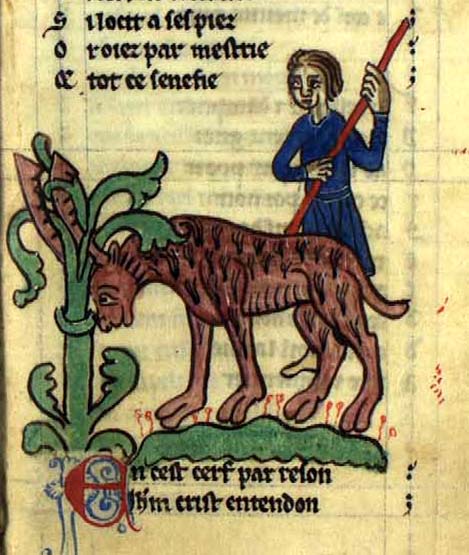 S ilocit a ses piez
O roier par mestrie
E tot ce senefie
En cest cerf par reson
Ihm crist entendon